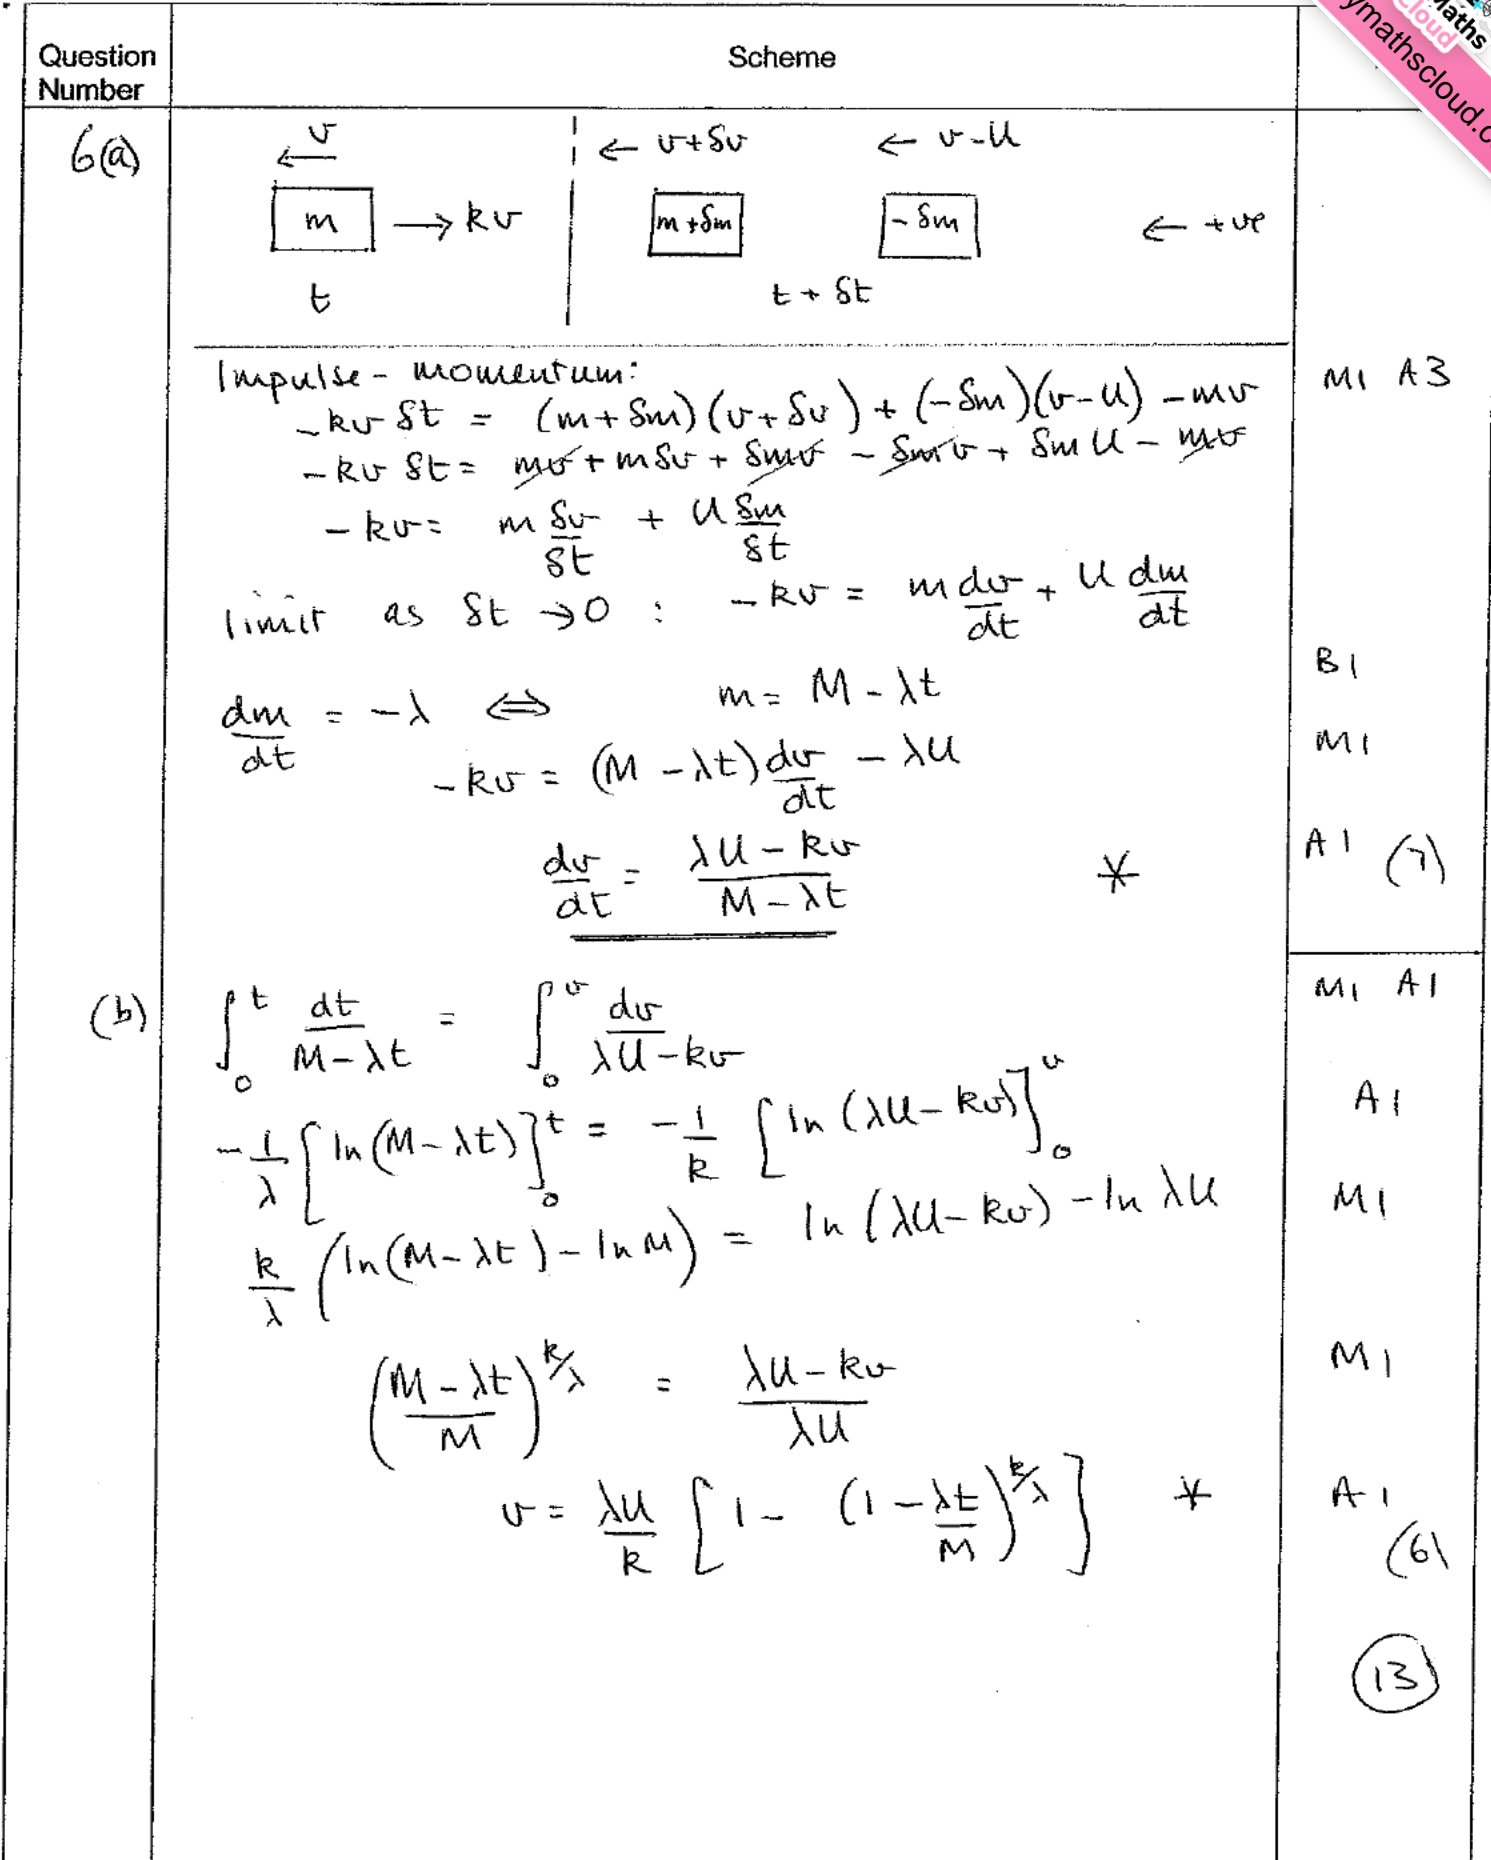 Question Number
Scheme
Maths
cloud
ymathscloud.c
6(a)
v
←
m → kv
t
← v+δv
← v-U
m+δm
-δm
← +ve
t + δt
Impulse - momentum:
-kv δt = (m+δm)(v+δv) + (-δm)(v-U) - mv
M1 A3
-kv δt = mv + mδv + δmv - δmv + δm U - mv
-kv = m δv/δt + U δm/δt
limit as δt → 0 : -kv = m dv/dt + U dm/dt
dm/dt = -λ ⇔ m = M - λt
B1
-kv = (M - λt) dv/dt - λU
M1
dv/dt = (λU - kv)/(M - λt) *
A1 (7)
(b)
∫₀ᵗ dt/(M-λt) = ∫₀ᵛ dv/(λU-kv)
M1 A1
-1/λ [ln(M-λt)]₀ᵗ = -1/k [ln(λU-kv)]₀ᵛ
A1
k/λ (ln(M-λt) - ln M) = ln(λU-kv) - ln λU
M1
((M-λt)/M)^(k/λ) = (λU-kv)/λU
M1
v = λU/k [1 - (1 - λt/M)^(k/λ)] *
A1
(6)
13